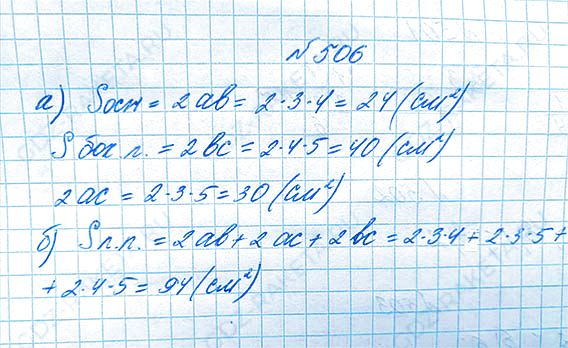 №506
а) Sосн = 2ab = 2·3·4 = 24 (см²)
S бок п. = 2bc = 2·4·5 = 40 (см²)
2ac = 2·3·5 = 30 (см²)
б) Sп.п. = 2ab + 2ac + 2bc = 2·3·4 + 2·3·5 +
+ 2·4·5 = 94 (см²)